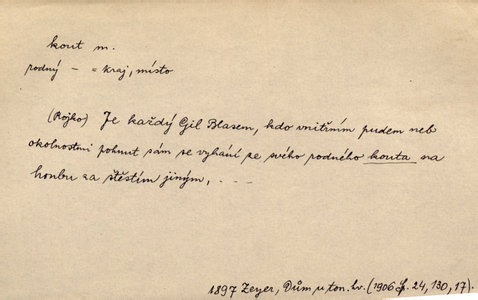 kout m.
rodný – = kraj, místo
(Rojko) Je každý Gil Blasem, kdo vnitřním pudem neb
okolnostmi pohnut sám se vyhání ze svého rodného kouta na
honbu za štěstím jiným, . – –
1897 Zeyer, Dům u ton. hv. (1906 f. 24, 130, 17).